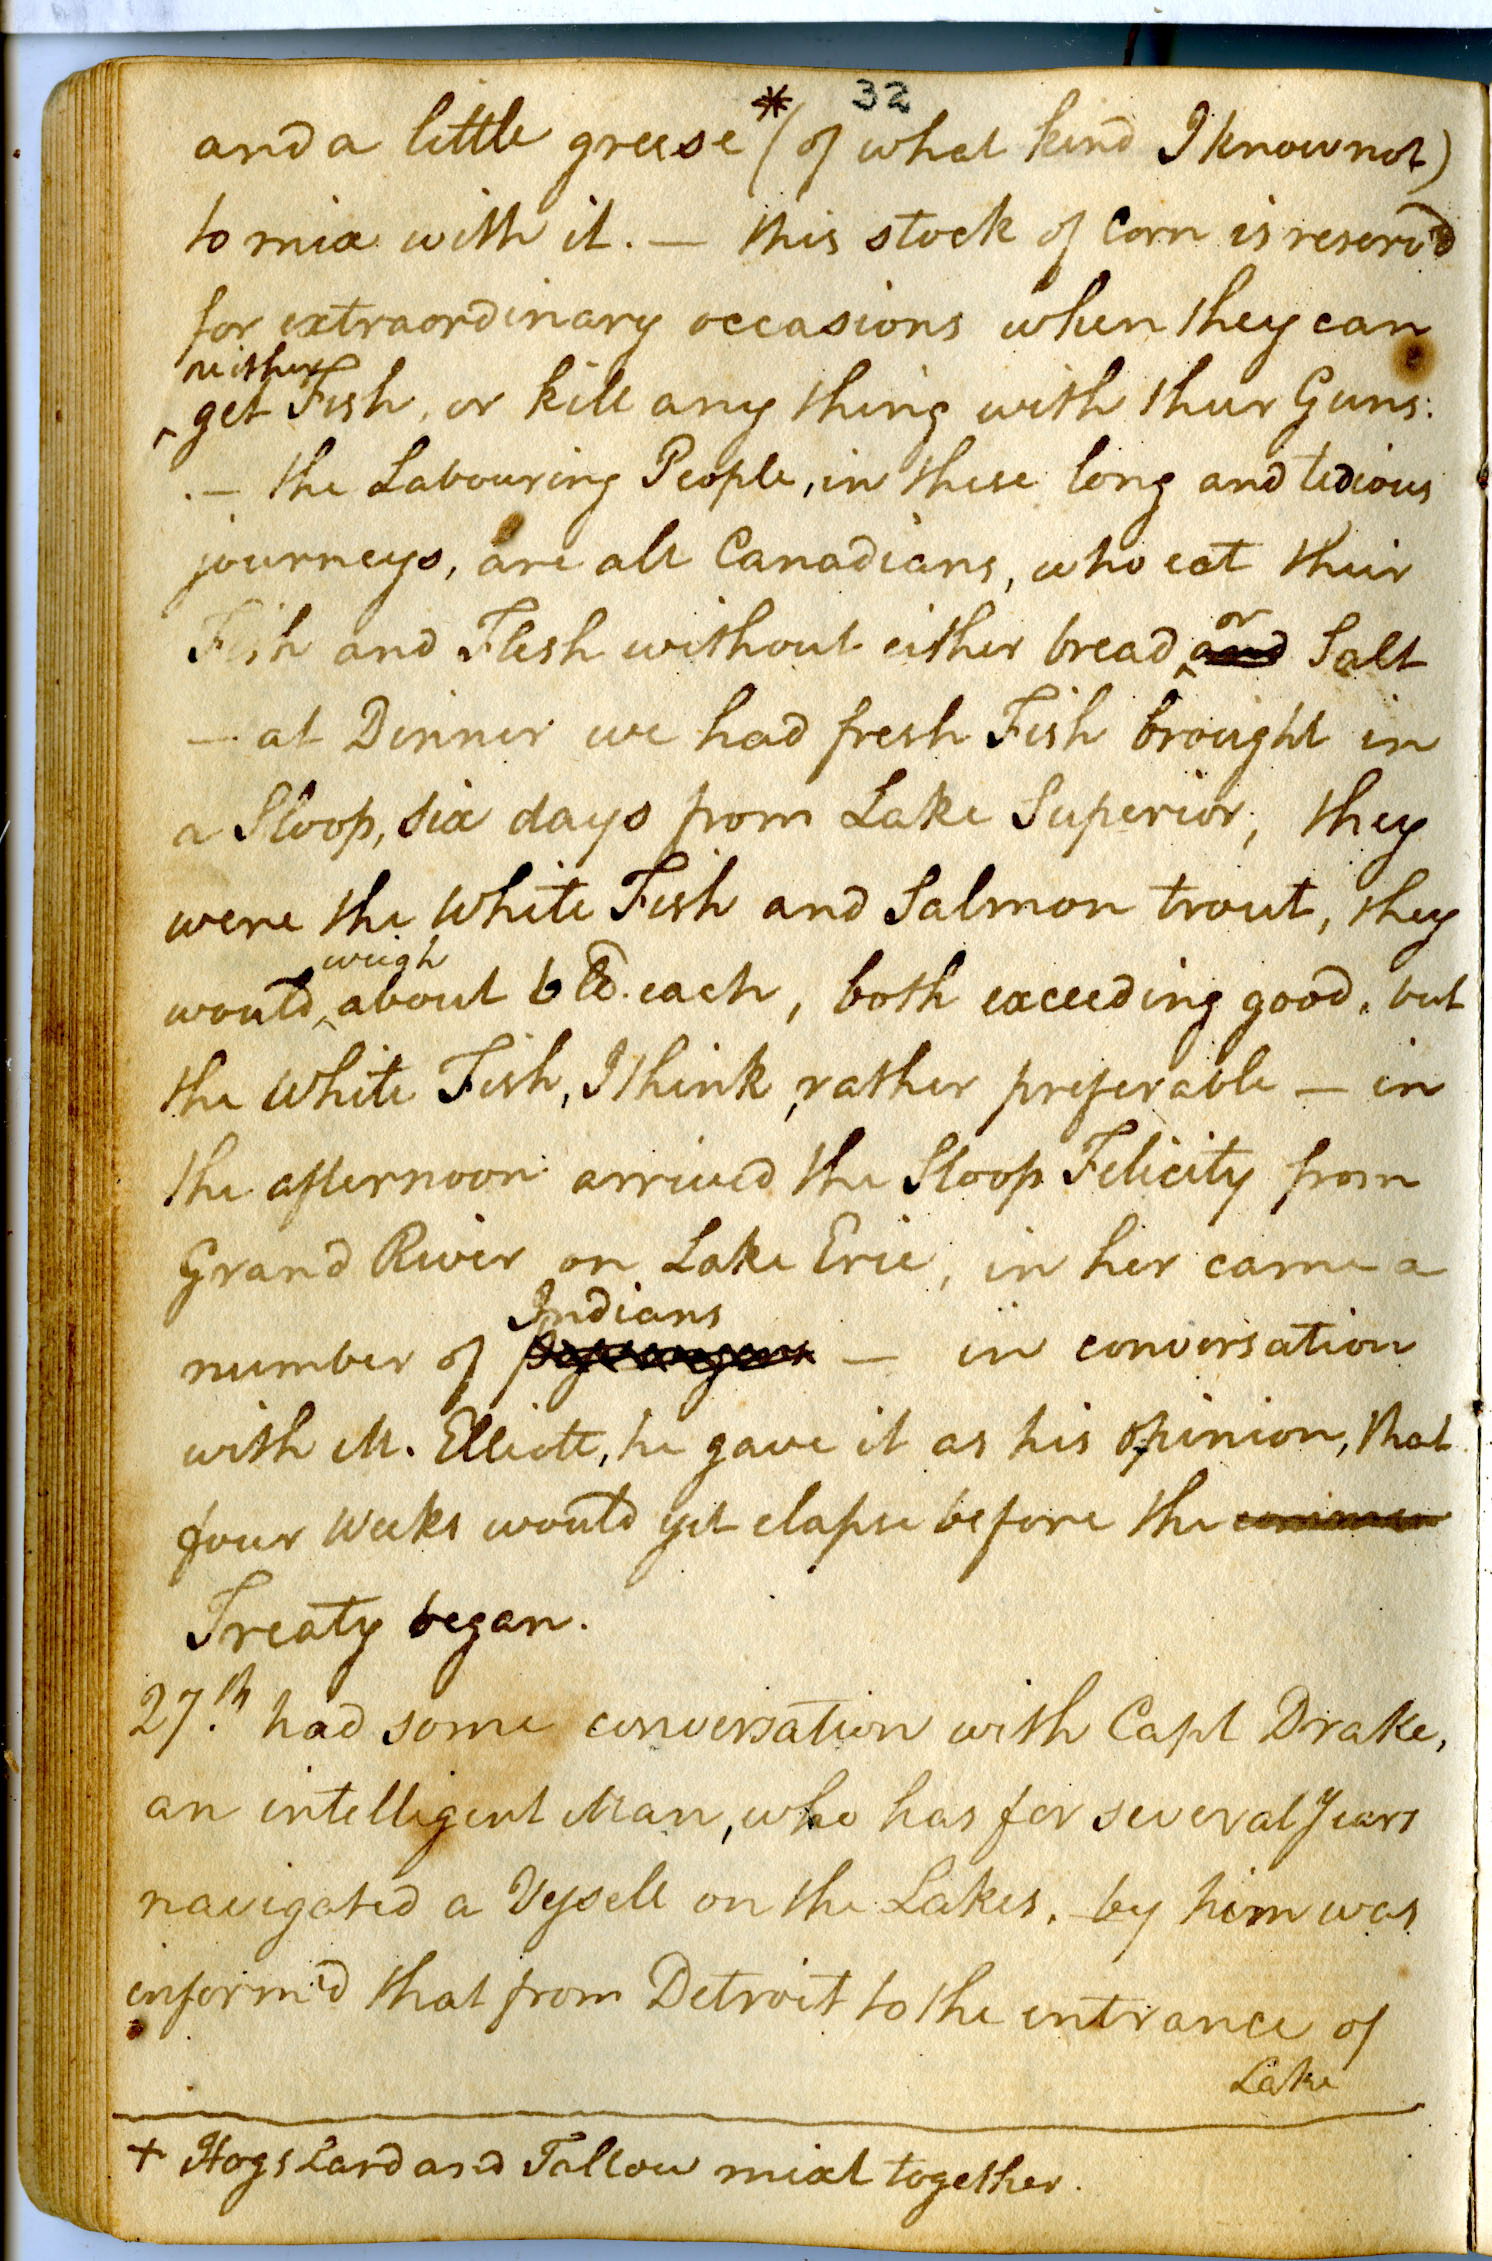 32
and a little greese * (of what kind I know not)
to mix with it. — this stock of Corn is reserv'd
for extraordinary occasions when they can
neither
^ get Fish, or kill any thing with their Guns.
. — the Labouring People, in these long and tedious
journeys, are all Canadians, who eat their
or
Fish and Flesh without either bread ^ and Salt
— at Dinner we had fresh Fish brought in
a Sloop, six days from Lake Superior, they
were the White Fish and Salmon trout, they
weigh
would ^ about 6 lb. each, both exceeding good, but
the White Fish, I think, rather preferable — in
the afternoon arrived the Sloop Felicity from
Grand River on Lake Erie, in her came a
Indians
number of passengers — in conversation
with M. Elliott, he gave it as his opinion, that
four weeks would yet elapse before the
Treaty began.
27th had some conversation with Capt Drake,
an intelligent Man, who has for several Years
navigated a Vessell on the Lakes. by him was
inform'd that from Detroit to the entrance of
Lake
+ Hogs Lard and Tallow mixt together.